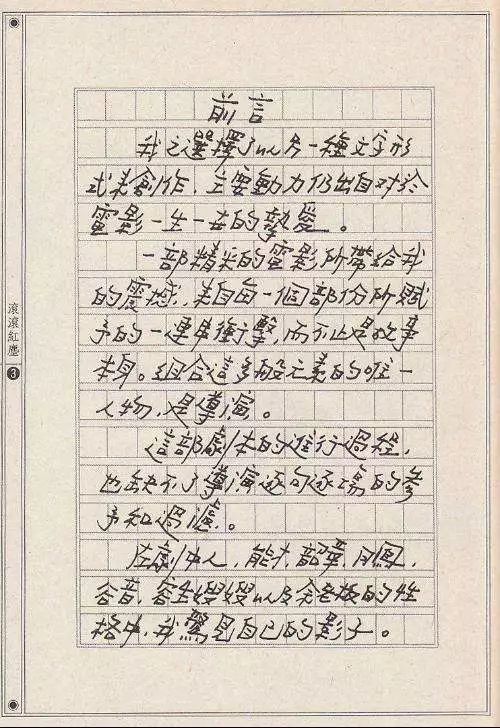 前言
我之選擇了以另一種文字形
式來創作，主要動力仍出自對於
電影一生一世的摯愛。
一部精采的電影所帶給我
的震撼，來自每一個部份所賦
予的一連串衝擊，而不止是故事
本身。組合這多般元素的唯一
人物，是導演。
這部劇本的進行過程，
也缺不了導演逐句逐場的參
予和過濾。
在劇中人，能才、韶華、月鳳、
谷音、容生嫂嫂以及余老板的性
格中，我驚見自己的影子。
滾滾紅塵
3